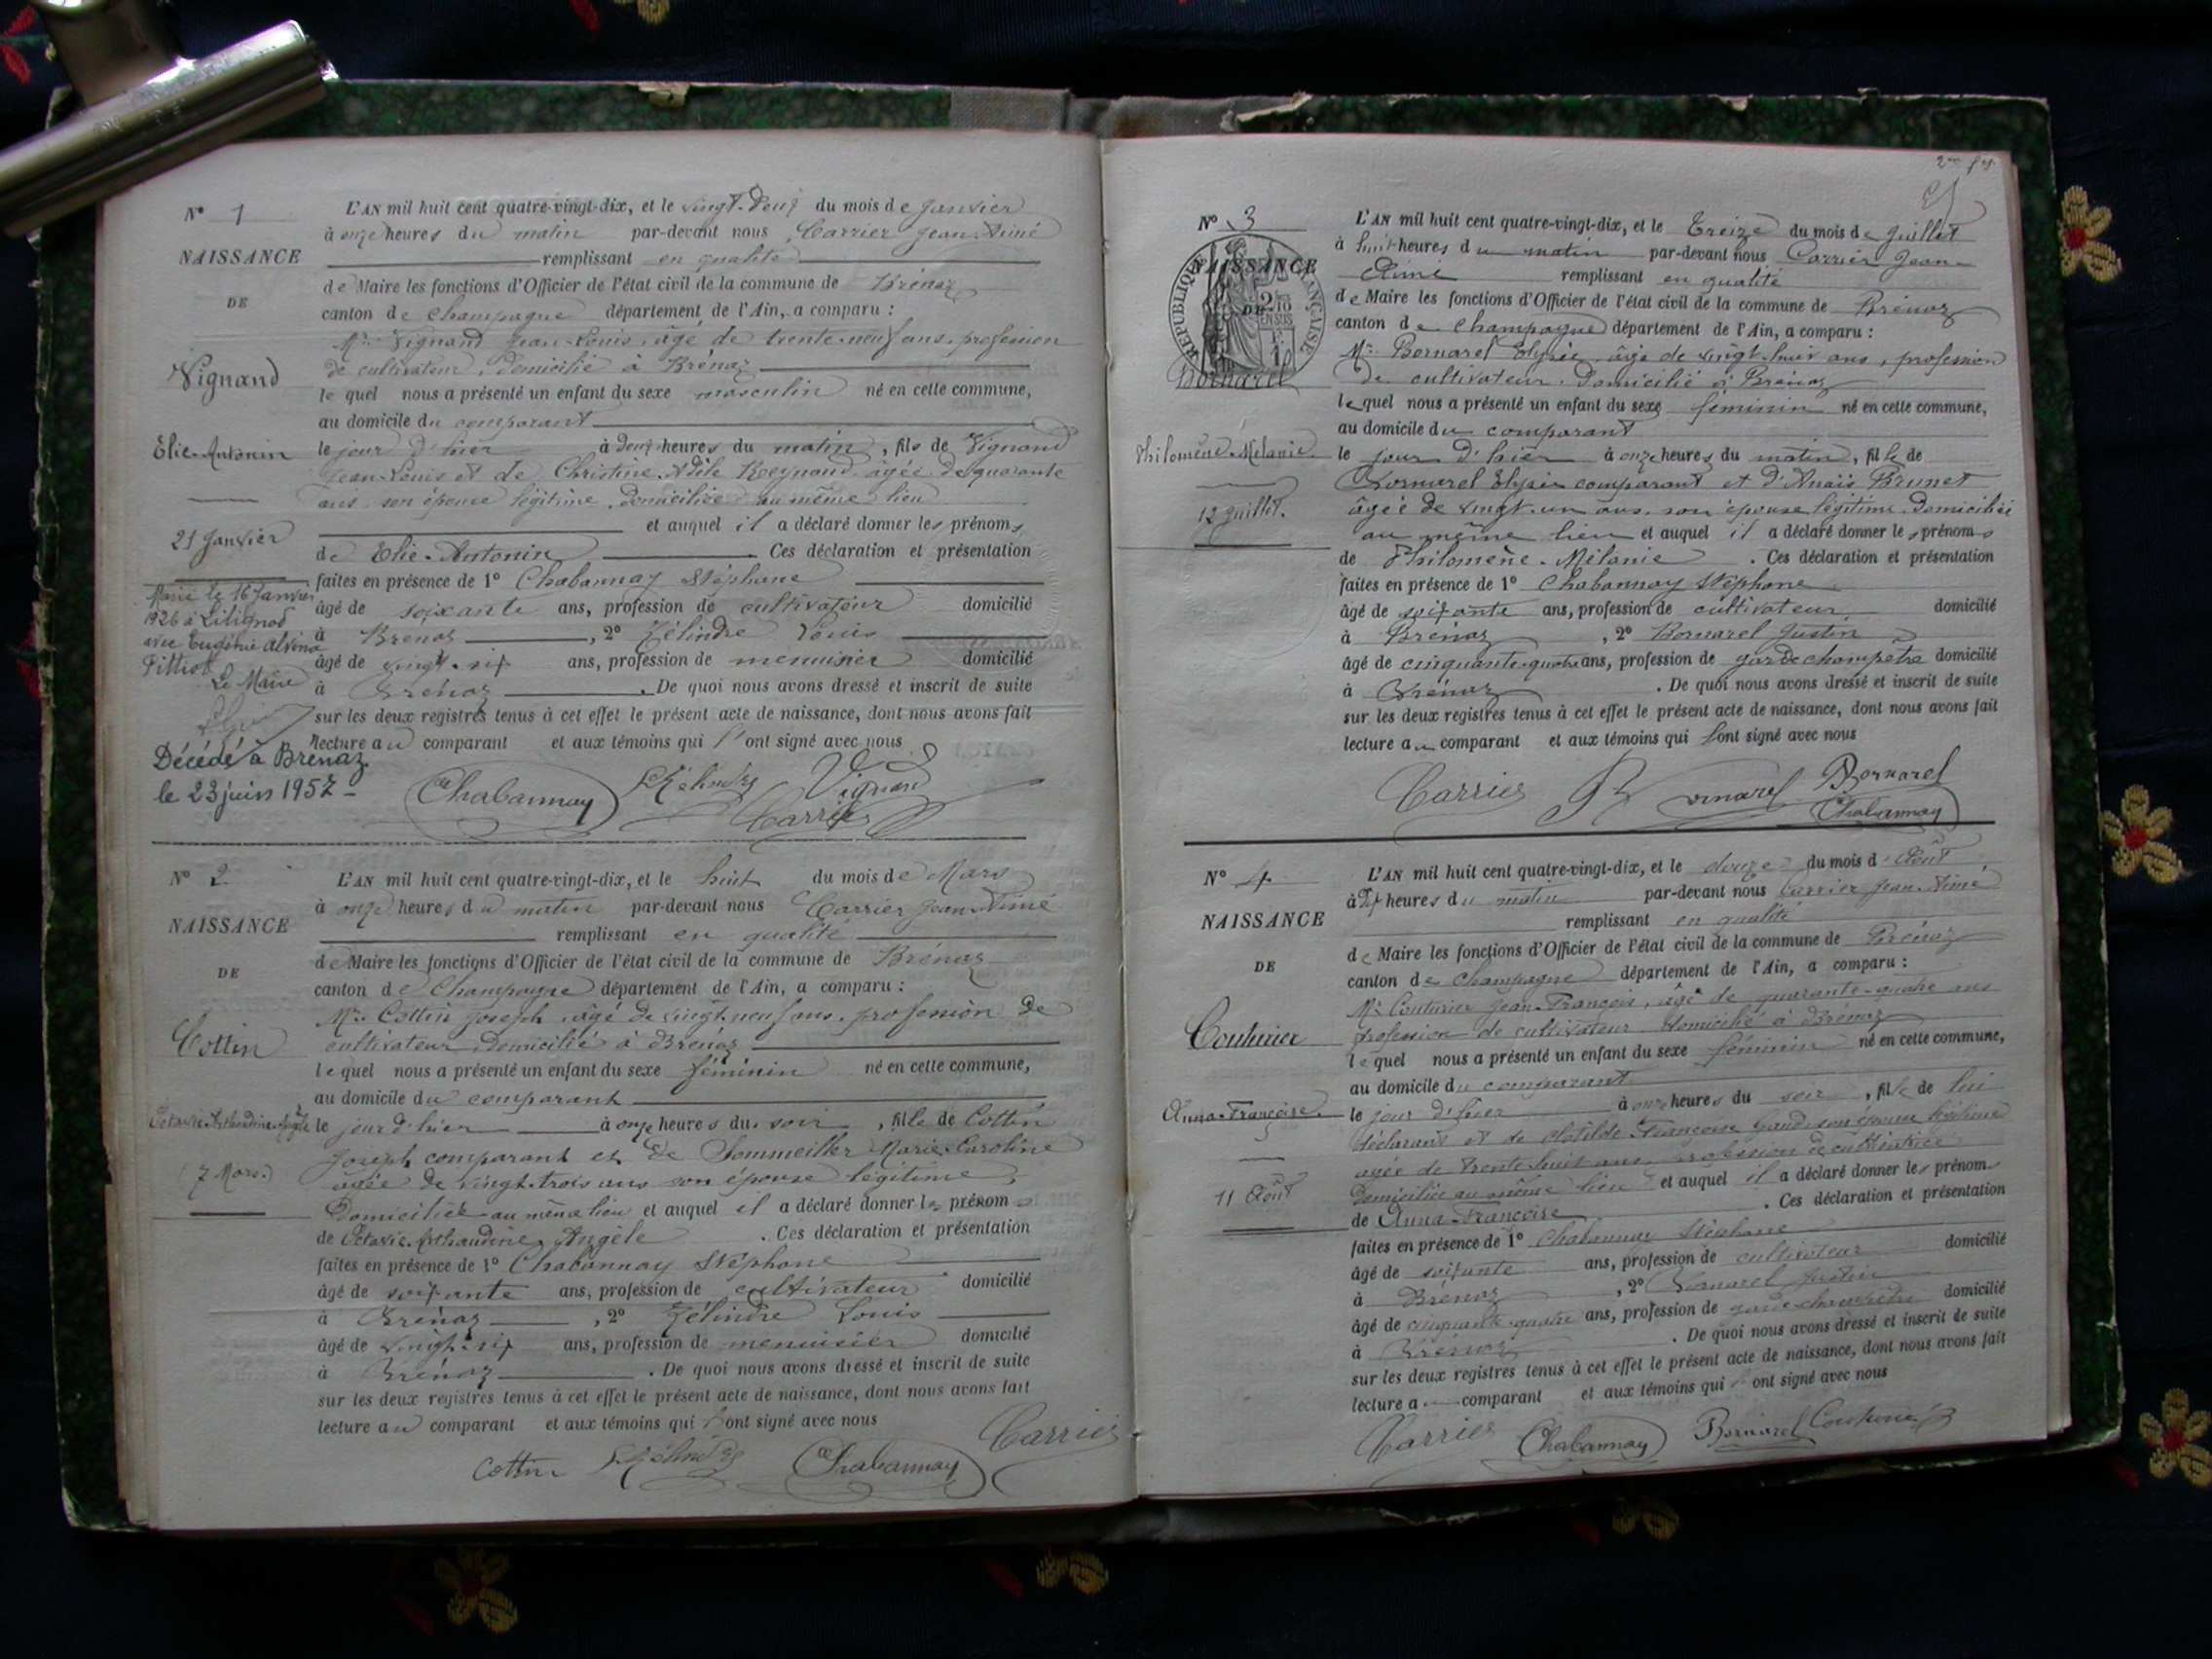 N° 1
NAISSANCE
DE
Vignand
Elie-Antonin
21 Janvier
Marié le 16 Janvier
1926 à Lilignod
avec Eugénie Alvina
Pittiot
Le Maire
Décédé à Brénaz
le 23 juin 1957 -
L'AN mil huit cent quatre-vingt-dix, et le vingt-deux du mois de Janvier
à onze heures du matin par-devant nous Carrier Jean-Aimé
remplissant en qualité
de Maire les fonctions d'Officier de l'état civil de la commune de Brénaz
canton de Champagne département de l'Ain, a comparu :
Mr Vignand Jean-Louis, âgé de trente-neuf ans, profession
de cultivateur, domicilié à Brénaz
lequel nous a présenté un enfant du sexe masculin né en cette commune,
au domicile du comparant
le jour d'hier à deux heures du matin, fils de Vignand
Jean-Louis et de Christine Adèle Reynaud âgée de quarante
ans, son épouse légitime, domiciliée au même lieu
et auquel il a déclaré donner les prénoms
de Elie-Antonin Ces déclaration et présentation
faites en présence de 1° Chabannay Stéphane
âgé de soixante ans, profession de cultivateur domicilié
à Brénaz, 2° Zélindre Louis
âgé de vingt-six ans, profession de menuisier domicilié
à Brénaz. De quoi nous avons dressé et inscrit de suite
sur les deux registres tenus à cet effet le présent acte de naissance, dont nous avons fait
lecture au comparant et aux témoins qui l'ont signé avec nous
Chabannay L Zélindre Vignand
Carrier
N° 2
NAISSANCE
DE
Cottin
Octavie-Arthaudine-Angèle
7 Mars
L'AN mil huit cent quatre-vingt-dix, et le huit du mois de Mars
à onze heures du matin par-devant nous Carrier Jean-Aimé
remplissant en qualité
de Maire les fonctions d'Officier de l'état civil de la commune de Brénaz
canton de Champagne département de l'Ain, a comparu :
Mr Cottin Joseph, âgé de vingt-neuf ans, profession de
cultivateur, domicilié à Brénaz
lequel nous a présenté un enfant du sexe féminin né en cette commune,
au domicile du comparant
le jour d'hier à onze heures du soir, fille de Cottin
Joseph comparant et de Sommeiller Marie-Caroline
âgée de vingt-trois ans son épouse légitime,
Domiciliée au même lieu et auquel il a déclaré donner les prénoms
de Octavie-Arthaudine-Angèle. Ces déclaration et présentation
faites en présence de 1° Chabannay Stéphane
âgé de soixante ans, profession de cultivateur domicilié
à Brénaz, 2° Zélindre Louis
âgé de vingt-six ans, profession de menuisier domicilié
à Brénaz. De quoi nous avons dressé et inscrit de suite
sur les deux registres tenus à cet effet le présent acte de naissance, dont nous avons fait
lecture au comparant et aux témoins qui l'ont signé avec nous
Cottin L Zélindre Chabannay Carrier
N° 3
NAISSANCE
DE
RÉPUBLIQUE FRANÇAISE
Bornarel
Philomène-Mélanie
12 Juillet.
L'AN mil huit cent quatre-vingt-dix, et le Treize du mois de Juillet
à huit heures du matin par-devant nous Carrier Jean-
Aimé remplissant en qualité
de Maire les fonctions d'Officier de l'état civil de la commune de Brénaz
canton de Champagne département de l'Ain, a comparu :
Mr Bornarel Elysée, âgé de vingt-huit ans, profession
de cultivateur, domicilié à Brénaz
lequel nous a présenté un enfant du sexe féminin né en cette commune,
au domicile du comparant
le jour d'hier à onze heures du matin, fille de
Bornarel Elysée comparant et d'Anaïs Brunet
âgée de vingt-un ans, son épouse légitime, domiciliée
au même lieu et auquel il a déclaré donner les prénoms
de Philomène-Mélanie. Ces déclaration et présentation
faites en présence de 1° Chabannay Stéphane
âgé de soixante ans, profession de cultivateur domicilié
à Brénaz, 2° Bornarel Justin
âgé de cinquante-quatre ans, profession de garde champêtre domicilié
à Brénaz. De quoi nous avons dressé et inscrit de suite
sur les deux registres tenus à cet effet le présent acte de naissance, dont nous avons fait
lecture au comparant et aux témoins qui l'ont signé avec nous
Carrier Bornarel Bornarel
Chabannay
N° 4
NAISSANCE
DE
Couturier
Anna-Françoise.
11 Août
L'AN mil huit cent quatre-vingt-dix, et le douze du mois d'Août
à dix heures du matin par-devant nous Carrier Jean-Aimé
remplissant en qualité
de Maire les fonctions d'Officier de l'état civil de la commune de Brénaz
canton de Champagne département de l'Ain, a comparu :
Mr Couturier Jean-François, âgé de quarante-quatre ans
profession de cultivateur domicilié à Brénaz
lequel nous a présenté un enfant du sexe féminin né en cette commune,
au domicile du comparant
le jour d'hier à onze heures du soir, fille de lui
déclarant et de Clotilde-Françoise son épouse légitime
âgée de trente-huit ans, profession de cultivatrice
Domiciliée au même lieu et auquel il a déclaré donner les prénoms
de Anna-Françoise. Ces déclaration et présentation
faites en présence de 1° Chabannay Stéphane
âgé de soixante ans, profession de cultivateur domicilié
à Brénaz, 2° Bornarel Justin
âgé de cinquante-quatre ans, profession de garde-champêtre domicilié
à Brénaz. De quoi nous avons dressé et inscrit de suite
sur les deux registres tenus à cet effet le présent acte de naissance, dont nous avons fait
lecture au comparant et aux témoins qui l'ont signé avec nous
Carrier Chabannay Bornarel Couturier